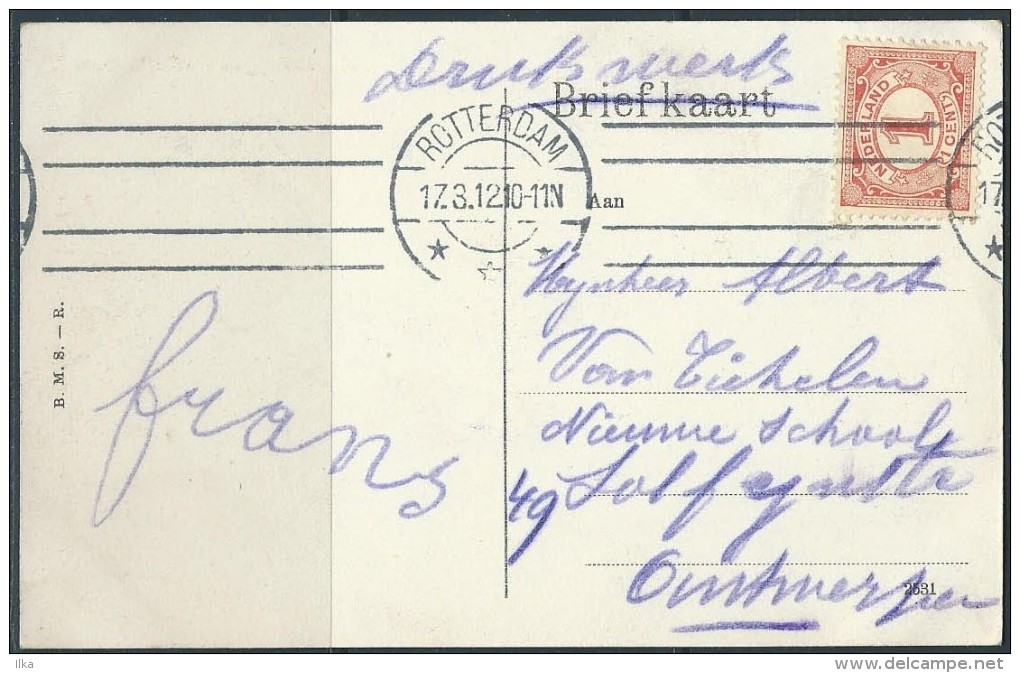 Drukwerk
Briefkaart
NEDERLAND
1 CENT
1
ROTTERDAM
17.3.12 10-11N
Aan
Mynheer Albert
Van Tichelen
Nieuwe School
49
Antwerpen
B. M. S. — R.
frans
2531
Ilka
delcampe.net